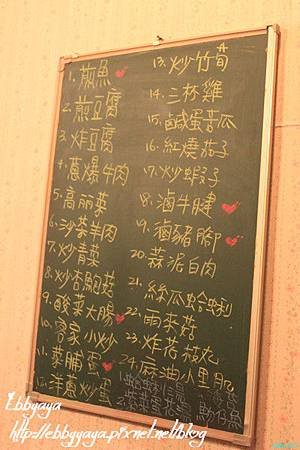 1. 煎魚
2. 煎豆腐
3. 炸豆腐
4. 蔥爆牛肉
5. 高丽菜
6. 沙茶羊肉
7. 炒青菜
8. 炒杏鮑菇
9. 酸菜大腸
10. 客家小炒
11. 菜脯蛋
12. 洋蔥炒蛋
13. 炒竹荀
14. 三杯雞
15. 鹹蛋苦瓜
16. 紅燒茄子
17. 炒蝦子
18. 滷牛腱
19. 滷豬腳
20. 蒜泥白肉
21. 絲瓜蛤蜊
22. 雨來菇
23. 炸花枝丸
24. 麻油小里肌
Ebbyaya
http://ebbyyaya.pixnet.net/blog